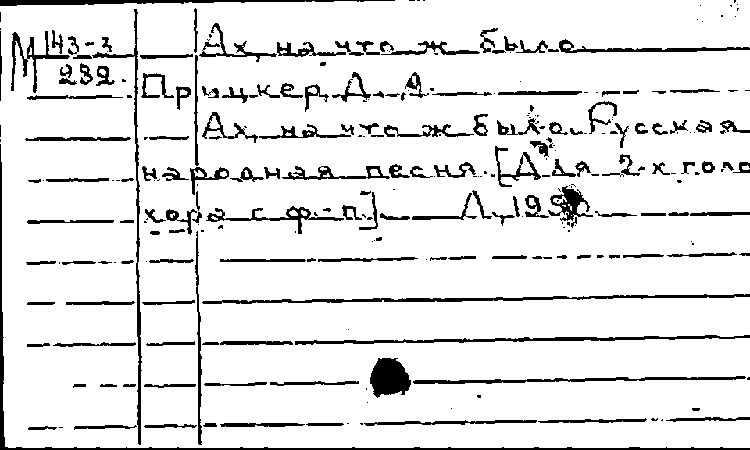 М 143-3
232.
Ах, на что ж было
Прицкер, Д. А.
Ах, на что ж было. Русская
народная песня. [Для 2-х голо
хора с ф.-п.]. Л.,